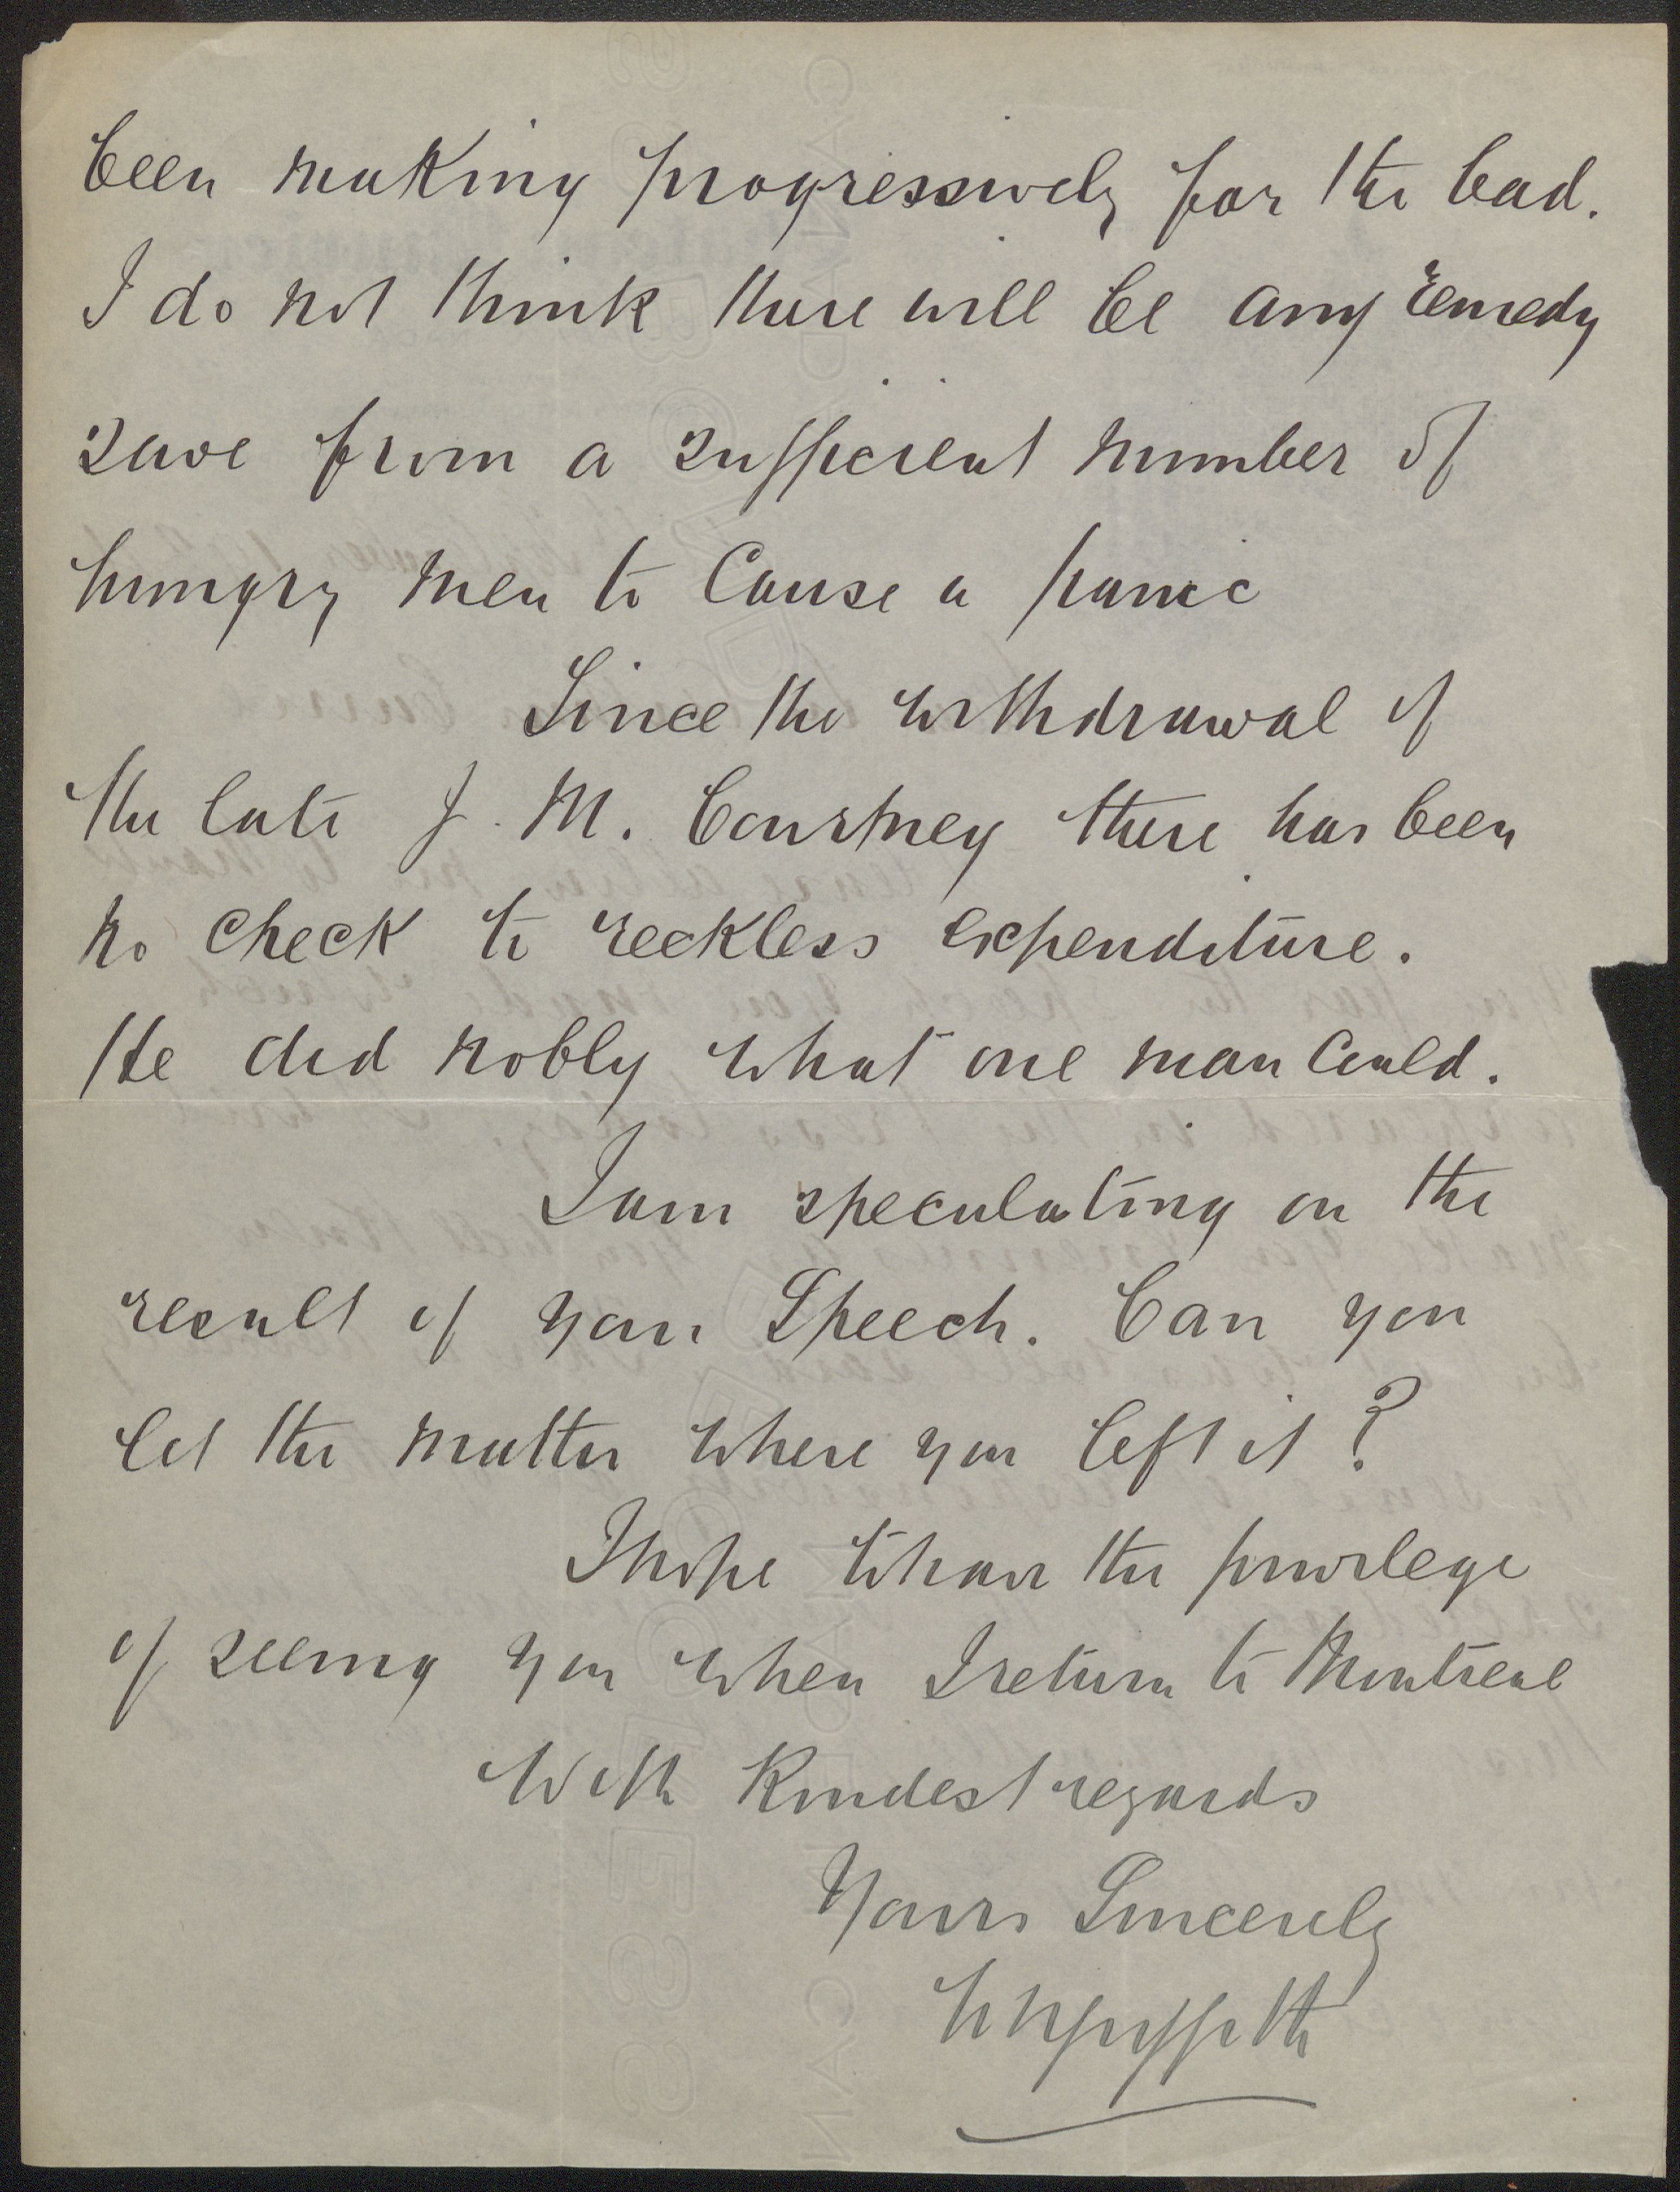 been making progressively for the bad.
I do not think there will be any remedy
save from a sufficient number of
hungry men to cause a panic
Since the withdrawal of
the late J. M. Courtney there has been
no check to reckless expenditure.
He did nobly what one man could.
I am speculating on the
result of your Speech. Can you
let the matter where you left it?
I hope to have the privilege
of seeing you when I return to Montreal
With Kindest regards
Yours Sincerely